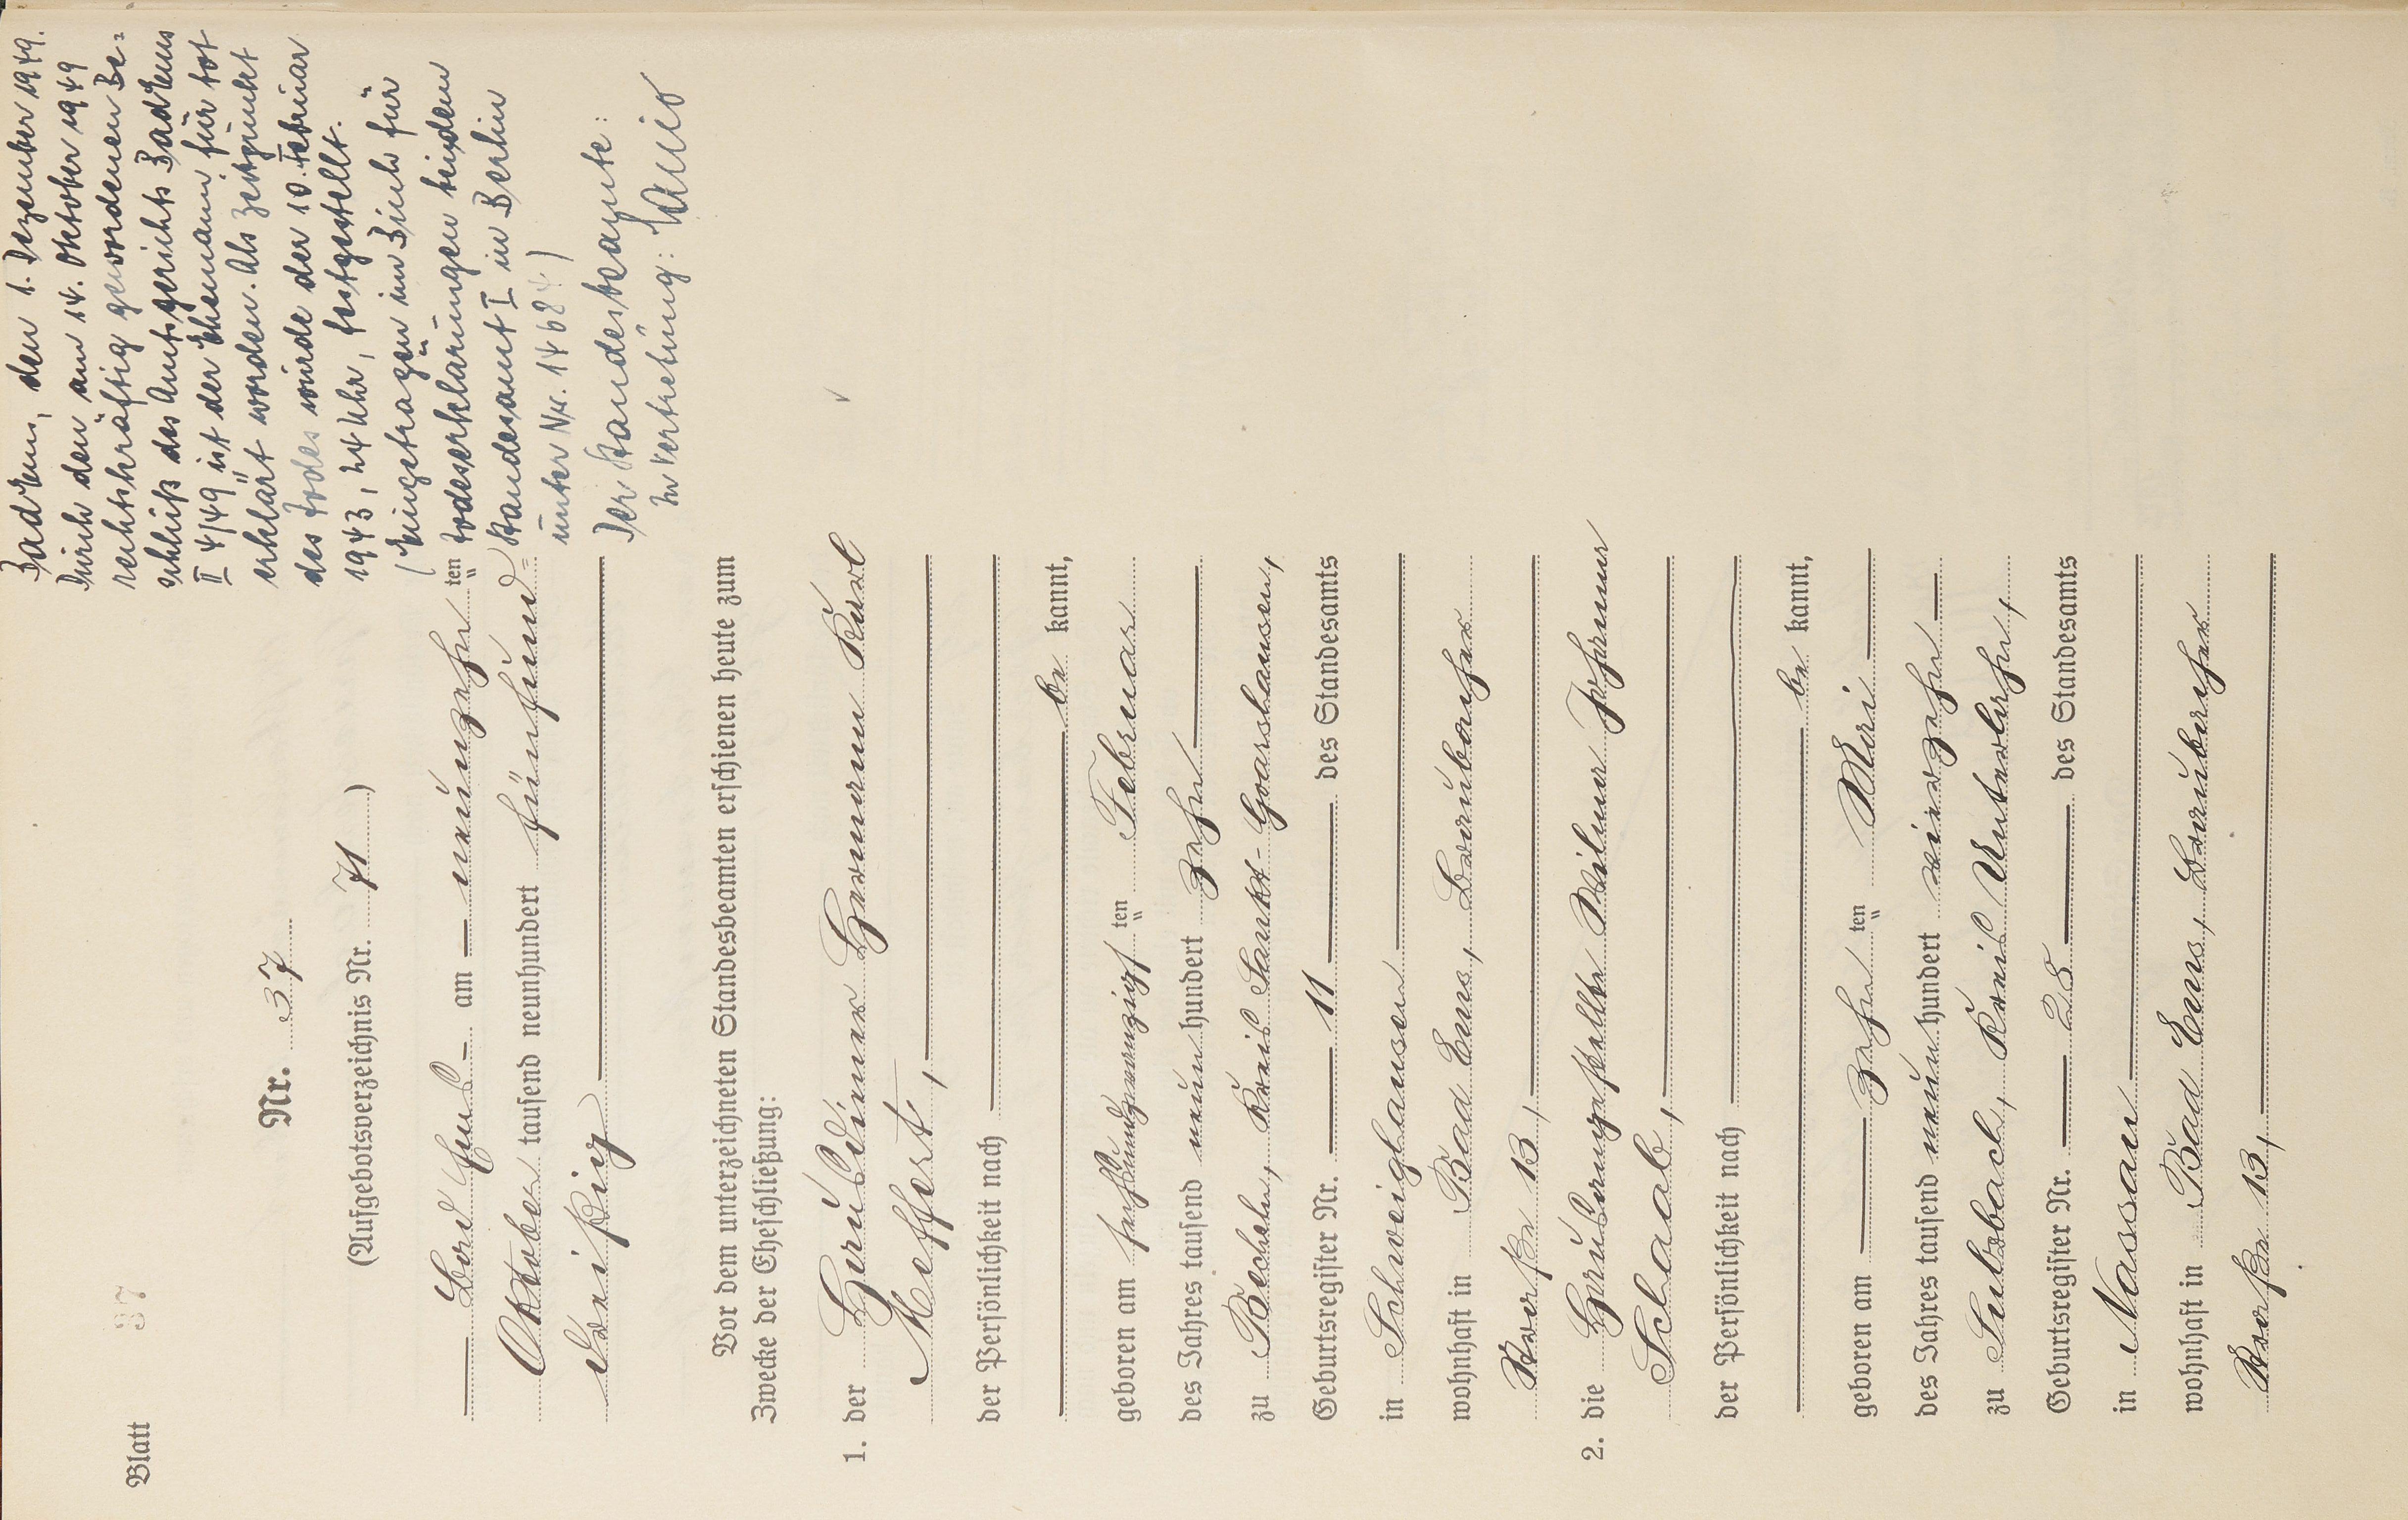 Blatt 37
Nr. 37
(Aufgebotsverzeichnis Nr. 71)
Bad Ems am neunzehn ten
Oktober tausend neunhundert fünfund=
dreißig
Vor dem unterzeichneten Standesbeamten erschienen heute zum
Zwecke der Eheschließung:
1. der Hausdiener Hermann Karl
Meffert,
der Persönlichkeit nach
be kannt,
geboren am sechsundzwanzigsten Februar
des Jahres tausend neun hundert zehn
zu Becheln, Kreis Sankt-Goarshausen,
Geburtsregister Nr. 11 des Standesamts
in Schweighausen
wohnhaft in Bad Ems, Braubacher
Straße 13,
2. die Hausangestellte Wilma Johanna
Schlaab,
der Persönlichkeit nach
be kannt,
geboren am zehn ten Mai
des Jahres tausend neun hundert vierzehn
zu Sulzbach, Kreis Unterlahn,
Geburtsregister Nr. 28 des Standesamts
in Nassau
wohnhaft in Bad Ems, Braubacher
Straße 13,
Bad Ems, den 1. Dezember 1949.
Durch den am 14. Oktober 1949
rechtskräftig gewordenen Be=
schluß des Amtsgerichts Bad Ems
II 4/49 ist der Ehemann für tot
erklärt worden. Als Zeitpunkt
des Todes wurde der 10. Februar
1943, 24 Uhr, festgestellt.
(Eingetragen im Buch für
Todeserklärungen bei dem
Standesamt I in Berlin
unter Nr. 14684)
Der Standesbeamte:
In Vertretung: